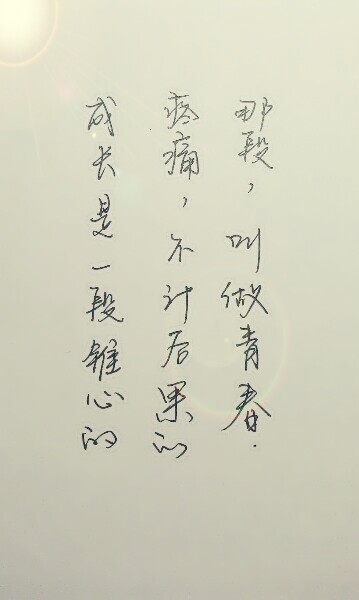 成长是一段锥心的
疼痛，不计后果的
那段，叫做青春.